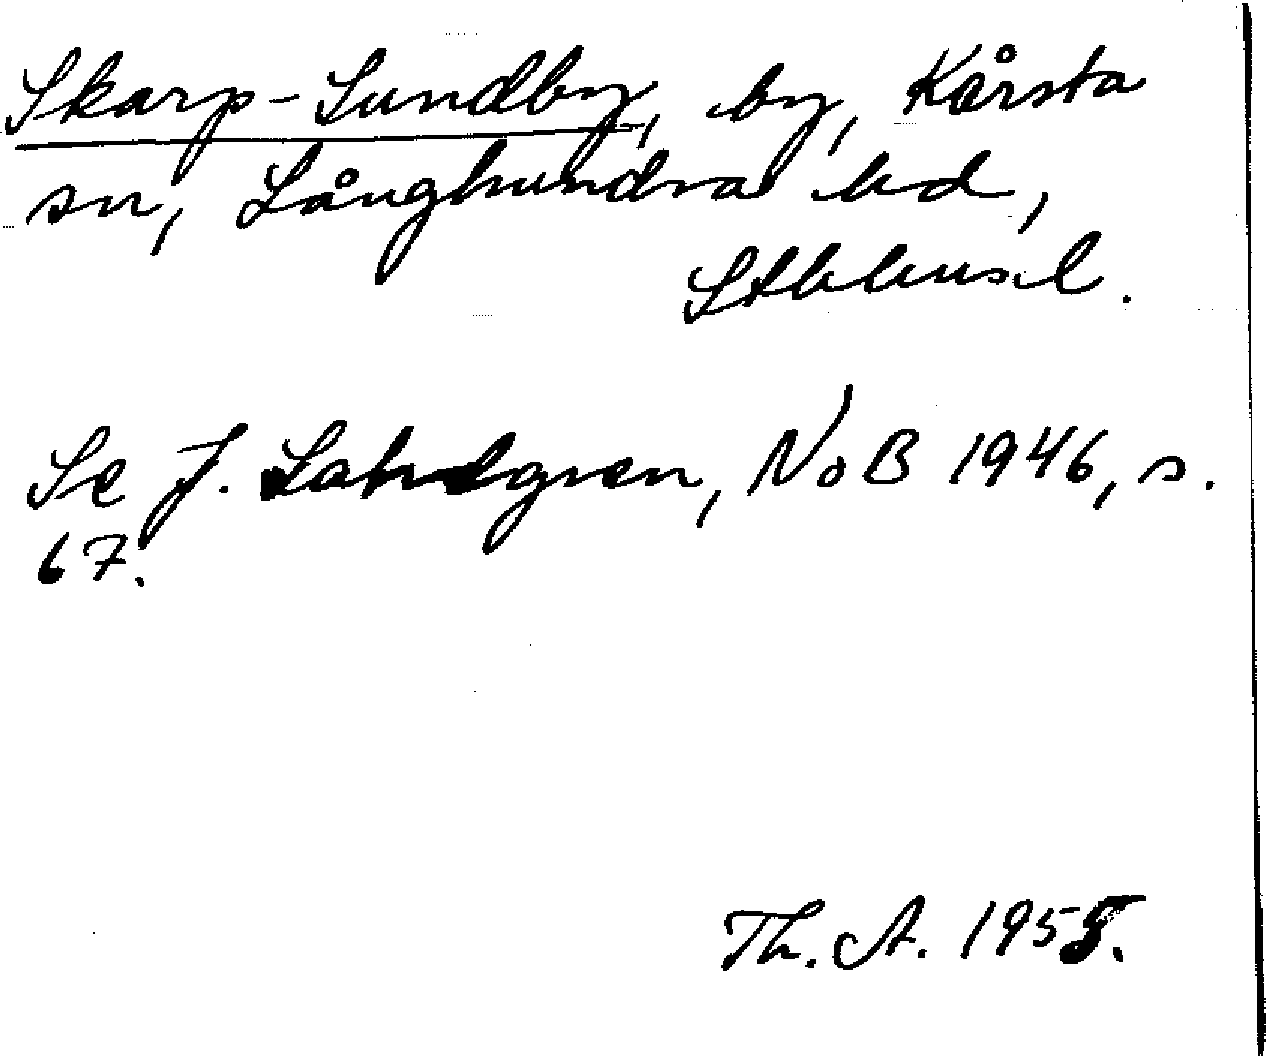 Skarp-Sundby, by, Kårsta
sn, Långhundra hd,
Sthlmsl.
Se J. Sahlgren, NoB 1946, s.
67.
Th. A. 1955.